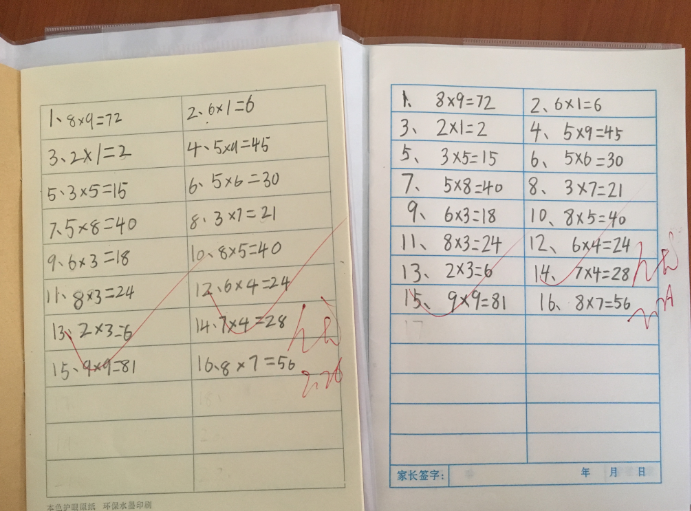 1、8×9=72 2、6×1=6
3、2×1=2 4、5×9=45
5、3×5=15 6、5×6=30
7、5×8=40 8、3×7=21
9、6×3=18 10、8×5=40
11、8×3=24 12、6×4=24
13、2×3=6 14、7×4=28
15、9×9=81 16、8×7=56
1、8×9=72 2、6×1=6
3、2×1=2 4、5×9=45
5、3×5=15 6、5×6=30
7、5×8=40 8、3×7=21
9、6×3=18 10、8×5=40
11、8×3=24 12、6×4=24
13、2×3=6 14、7×4=28
15、9×9=81 16、8×7=56
家长签字： 年 月 日